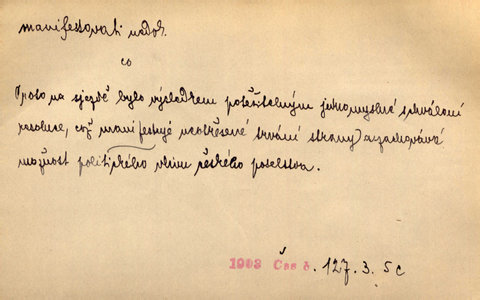 manifestovati nedok.
co
Proto na sjezdě bylo výsledkem potěšitelným jednomyslné schválení
resoluce, což manifestuje neotřesené trvání strany a zachovává
možnost politického vlivu českého poselstva.
1903 Čas č. 127. 3. 5c